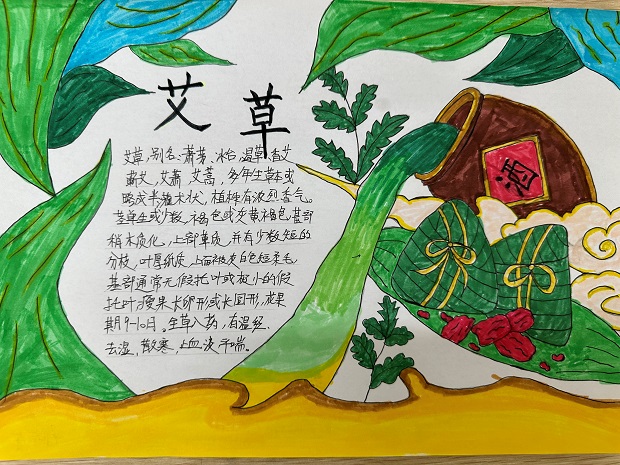 艾草
艾草,别名:萧茅、冰台、温草、香艾
蕲艾、艾萧、艾蒿,多年生草本或
略成半灌木状,植株有浓烈香气。
茎单生或少数,褐色或灰黄褐色基部
稍木质化,上部草质,并有少数短的
分枝,叶厚纸质,上面被灰白色短柔毛
基部通常无假托叶或极小的假
托叶;瘦果长卵形或长圆形,花果
期9-10月。全草入药,有温经、
去湿、散寒、止血、平喘。
酒